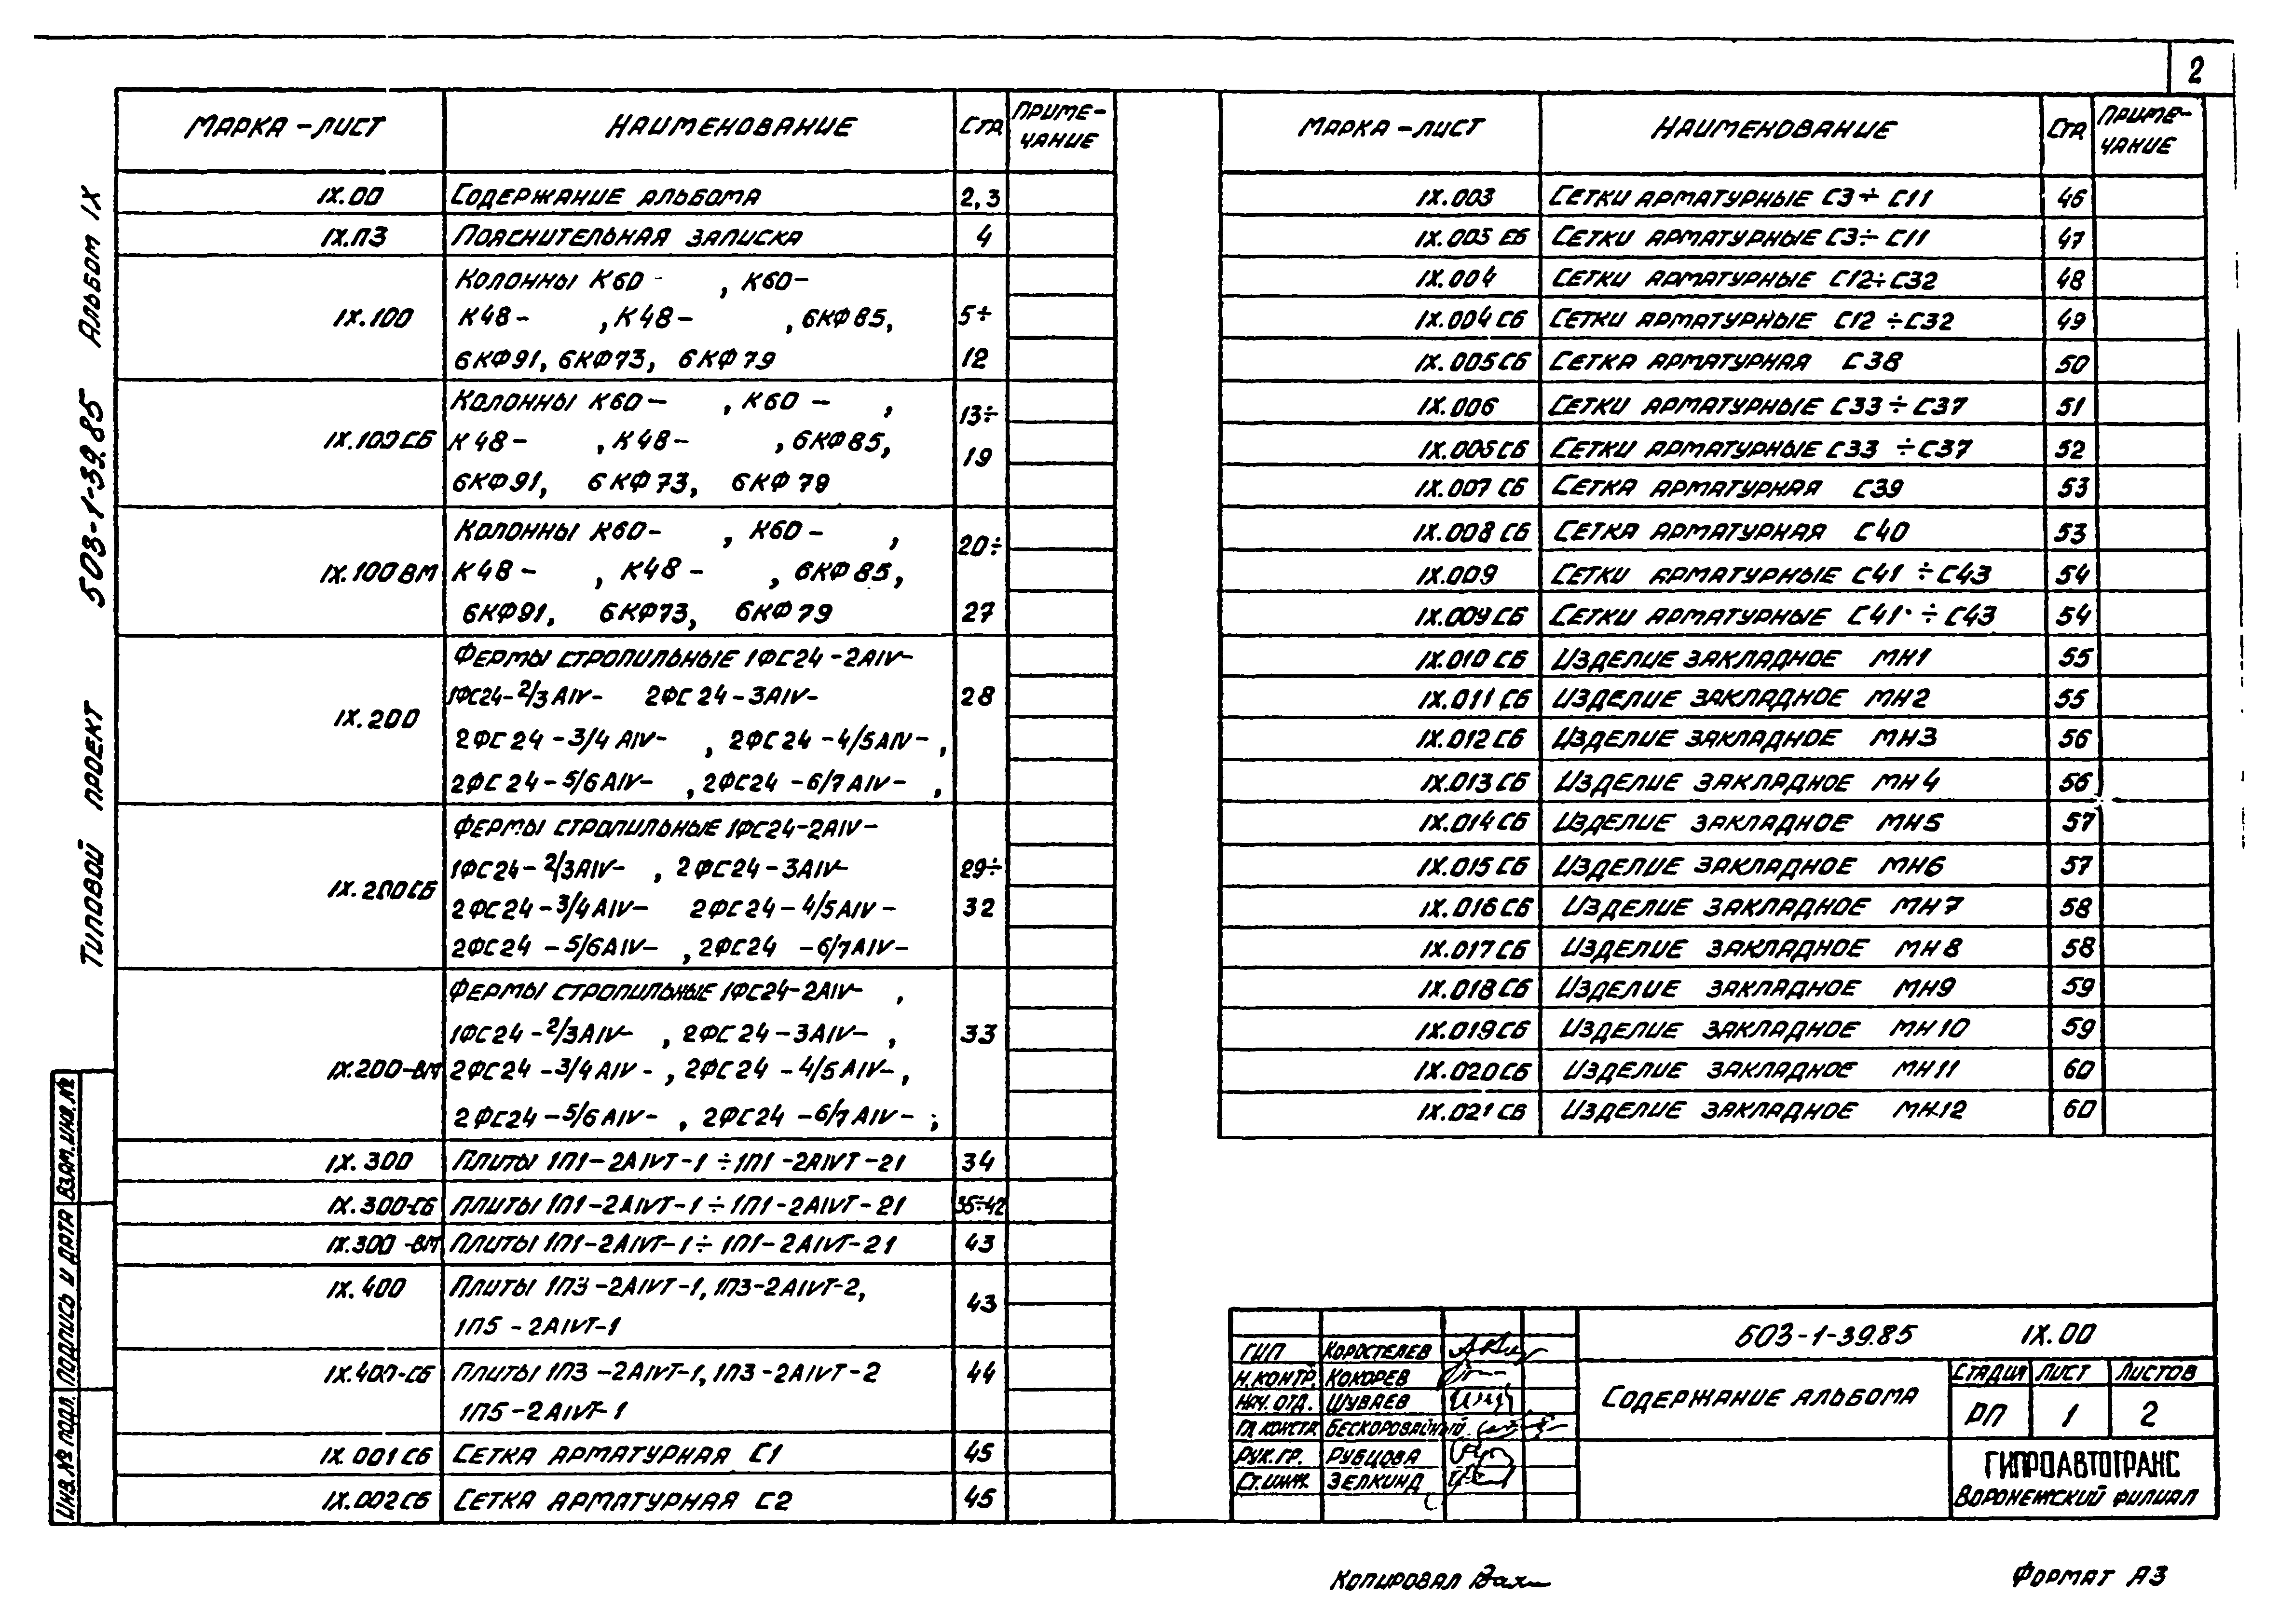 2
Марка - лист Наименование Стр Приме-чание
IX.00 Содержание альбома 2,3
IX.ПЗ Пояснительная записка 4
IX.100 Колонны К60- , К60-
К48- , К48- , 6КФ85, 5÷
6КФ91, 6КФ73, 6КФ79 12
IX.100СБ Колонны К60- , К60- , 13÷
К48- , К48- , 6КФ85,
6КФ91, 6КФ73, 6КФ79 19
IX.100ВМ Колонны К60- , К60- , 20÷
К48- , К48- , 6КФ85,
6КФ91, 6КФ73, 6КФ79 27
IX.200 Фермы стропильные 1ФС24-2АIV-
1ФС24-2/3АIV- 2ФС24-3АIV- 28
2ФС24-3/4АIV- , 2ФС24-4/5АIV- ,
2ФС24-5/6АIV- , 2ФС24-6/7АIV- ,
IX.200СБ Фермы стропильные 1ФС24-2АIV-
1ФС24-2/3АIV- , 2ФС24-3АIV- 29÷
2ФС24-3/4АIV- 2ФС24-4/5АIV- 32
2ФС24-5/6АIV- , 2ФС24-6/7АIV-
IX.200-ВМ Фермы стропильные 1ФС24-2АIV- ,
1ФС24-2/3АIV- , 2ФС24-3АIV- , 33
2ФС24-3/4АIV- , 2ФС24-4/5АIV- ,
2ФС24-5/6АIV- , 2ФС24-6/7АIV- ;
IX.300 Плиты 1П1-2АIVТ-1 ÷ 1П1-2АIVТ-21 34
IX.300-СБ Плиты 1П1-2АIVТ-1 ÷ 1П1-2АIVТ-21 35÷42
IX.300-ВМ Плиты 1П1-2АIVТ-1 ÷ 1П1-2АIVТ-21 43
IX.400 Плиты 1П3-2АIVТ-1, 1П3-2АIVТ-2,
1П5-2АIVТ-1 43
IX.400-СБ Плиты 1П3-2АIVТ-1, 1П3-2АIVТ-2 44
1П5-2АIVТ-1
IX.001СБ Сетка арматурная С1 45
IX.002СБ Сетка арматурная С2 45
Марка - лист Наименование Стр Приме-чание
IX.003 Сетки арматурные С3÷С11 46
IX.003СБ Сетки арматурные С3÷С11 47
IX.004 Сетки арматурные С12÷С32 48
IX.004СБ Сетки арматурные С12÷С32 49
IX.005СБ Сетка арматурная С38 50
IX.006 Сетки арматурные С33÷С37 51
IX.006СБ Сетки арматурные С33÷С37 52
IX.007СБ Сетка арматурная С39 53
IX.008СБ Сетка арматурная С40 53
IX.009 Сетки арматурные С41÷С43 54
IX.009СБ Сетки арматурные С41÷С43 54
IX.010СБ Изделие закладное МН1 55
IX.011СБ Изделие закладное МН2 55
IX.012СБ Изделие закладное МН3 56
IX.013СБ Изделие закладное МН4 56
IX.014СБ Изделие закладное МН5 57
IX.015СБ Изделие закладное МН6 57
IX.016СБ Изделие закладное МН7 58
IX.017СБ Изделие закладное МН8 58
IX.018СБ Изделие закладное МН9 59
IX.019СБ Изделие закладное МН10 59
IX.020СБ Изделие закладное МН11 60
IX.021СБ Изделие закладное МН12 60
Типовой проект 503-1-39.85 Альбом IX
Инв.№ подл. Подпись и дата Взам.инв.№
ГИП Коростелев
Н.контр Кокорев
Нач.отд. Шуваев
Гл.констр Бескоровайный
Рук.гр. Рубцова
Ст.инж. Зелкинд
503-1-39.85 IX.00
Содержание альбома
Стадия Лист Листов
РП 1 2
ГИПРОАВТОТРАНС
Воронежский филиал
Копировал
Формат А3